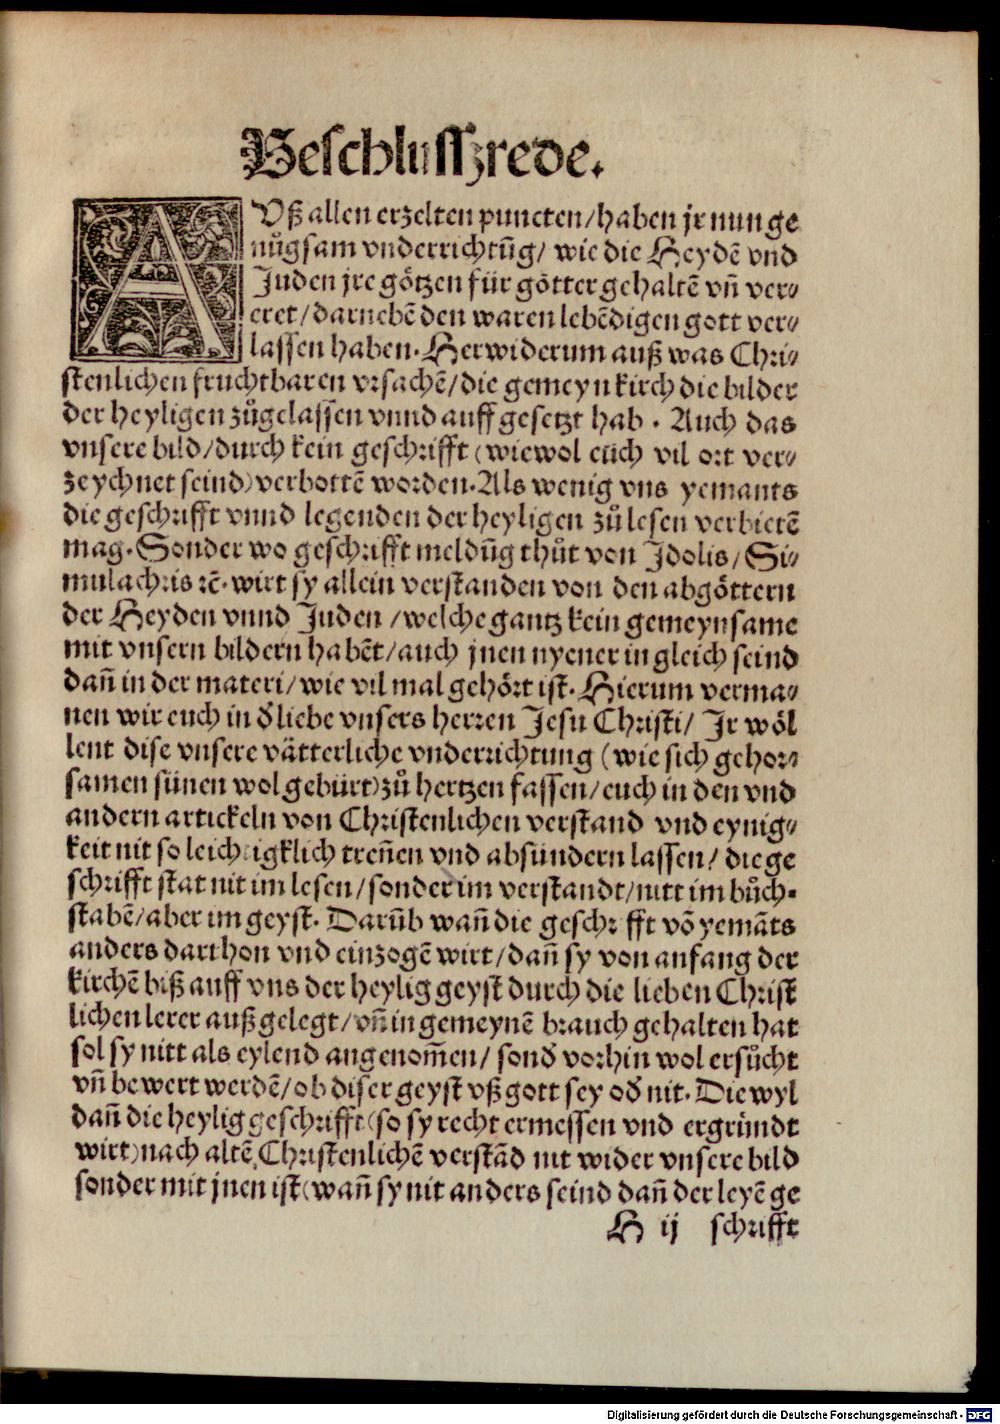 Beschlussz rede.
AVß allen erzelten puncten/haben jr nun ge
nůgsam vnderrichtũg/ wie die Heydẽ vnd
Juden jre götzen für götter gehaltẽ vñ ver⸗
eret/darnebẽ den waren lebẽdigen gott ver⸗
lassen haben. Herwiderum auß was Chri⸗
stenlichen fruchtbaren vrsachẽ/die gemeyn kirch die bilder
der heyligen zůgelassen vnnd auffgesetzt hab . Auch das
vnsere bild/durch kein geschrifft (wiewol euch vil ort ver⸗
zeychnet seind) verbottẽ worden. Als wenig vns yemants
die geschrifft vnnd legenden der heyligen zů lesen verbietẽ
mag. Sonder wo geschrifft meldũg thůt von Idolis/ Si⸗
mulachris ꝛc̃. wirt sy allein verstanden von den abgöttern
der Heyden vnnd Juden /welche gantz kein gemeynsame
mit vnsern bildern habẽt/auch jnen nyener in gleich seind
dañ in der materi/wie vil mal gehört ist. Hierum verma⸗
nen wir euch in d̕ liebe vnsers herren Jesu Christi/ Jr wöl
lent dise vnsere vätterliche vnderrichtung (wie sich gehor⸗
samen sünen wol gebürt) zů hertzen fassen/euch in den vnd
andern artickeln von Christenlichen verstand vnd eynig⸗
keit nit so leichtigklich treñen vnd absündern lassen/ die ge
schrifft stat nit im lesen/sonder im verstandt/nitt im bůch⸗
stabẽ/aber im geyst. Darũb wañ die geschrifft võ yemãts
anders darthon vnd einzogẽ wirt/dañ sy von anfang der
kirchẽ biß auff vns der heylig geyst durch die lieben Christ
lichen lerer außgelegt/vñ in gemeynẽ brauch gehalten hat
sol sy nitt als eylend angenom̃en/ sond̕ vorhin wol ersůcht
vñ bewert werdẽ/ob diser geyst vß gott sey od̕ nit. Die wyl
dañ die heylig geschrifft (so sy recht ermessen vnd ergründt
wirt) nach altẽ Christenlichẽ verstãd nit wider vnsere bild
sonder mit jnen ist (wañ sy nit anders seind dañ der leyẽ ge
H ij schrifft
Digitalisierung gefördert durch die Deutsche Forschungsgemeinschaft - DFG